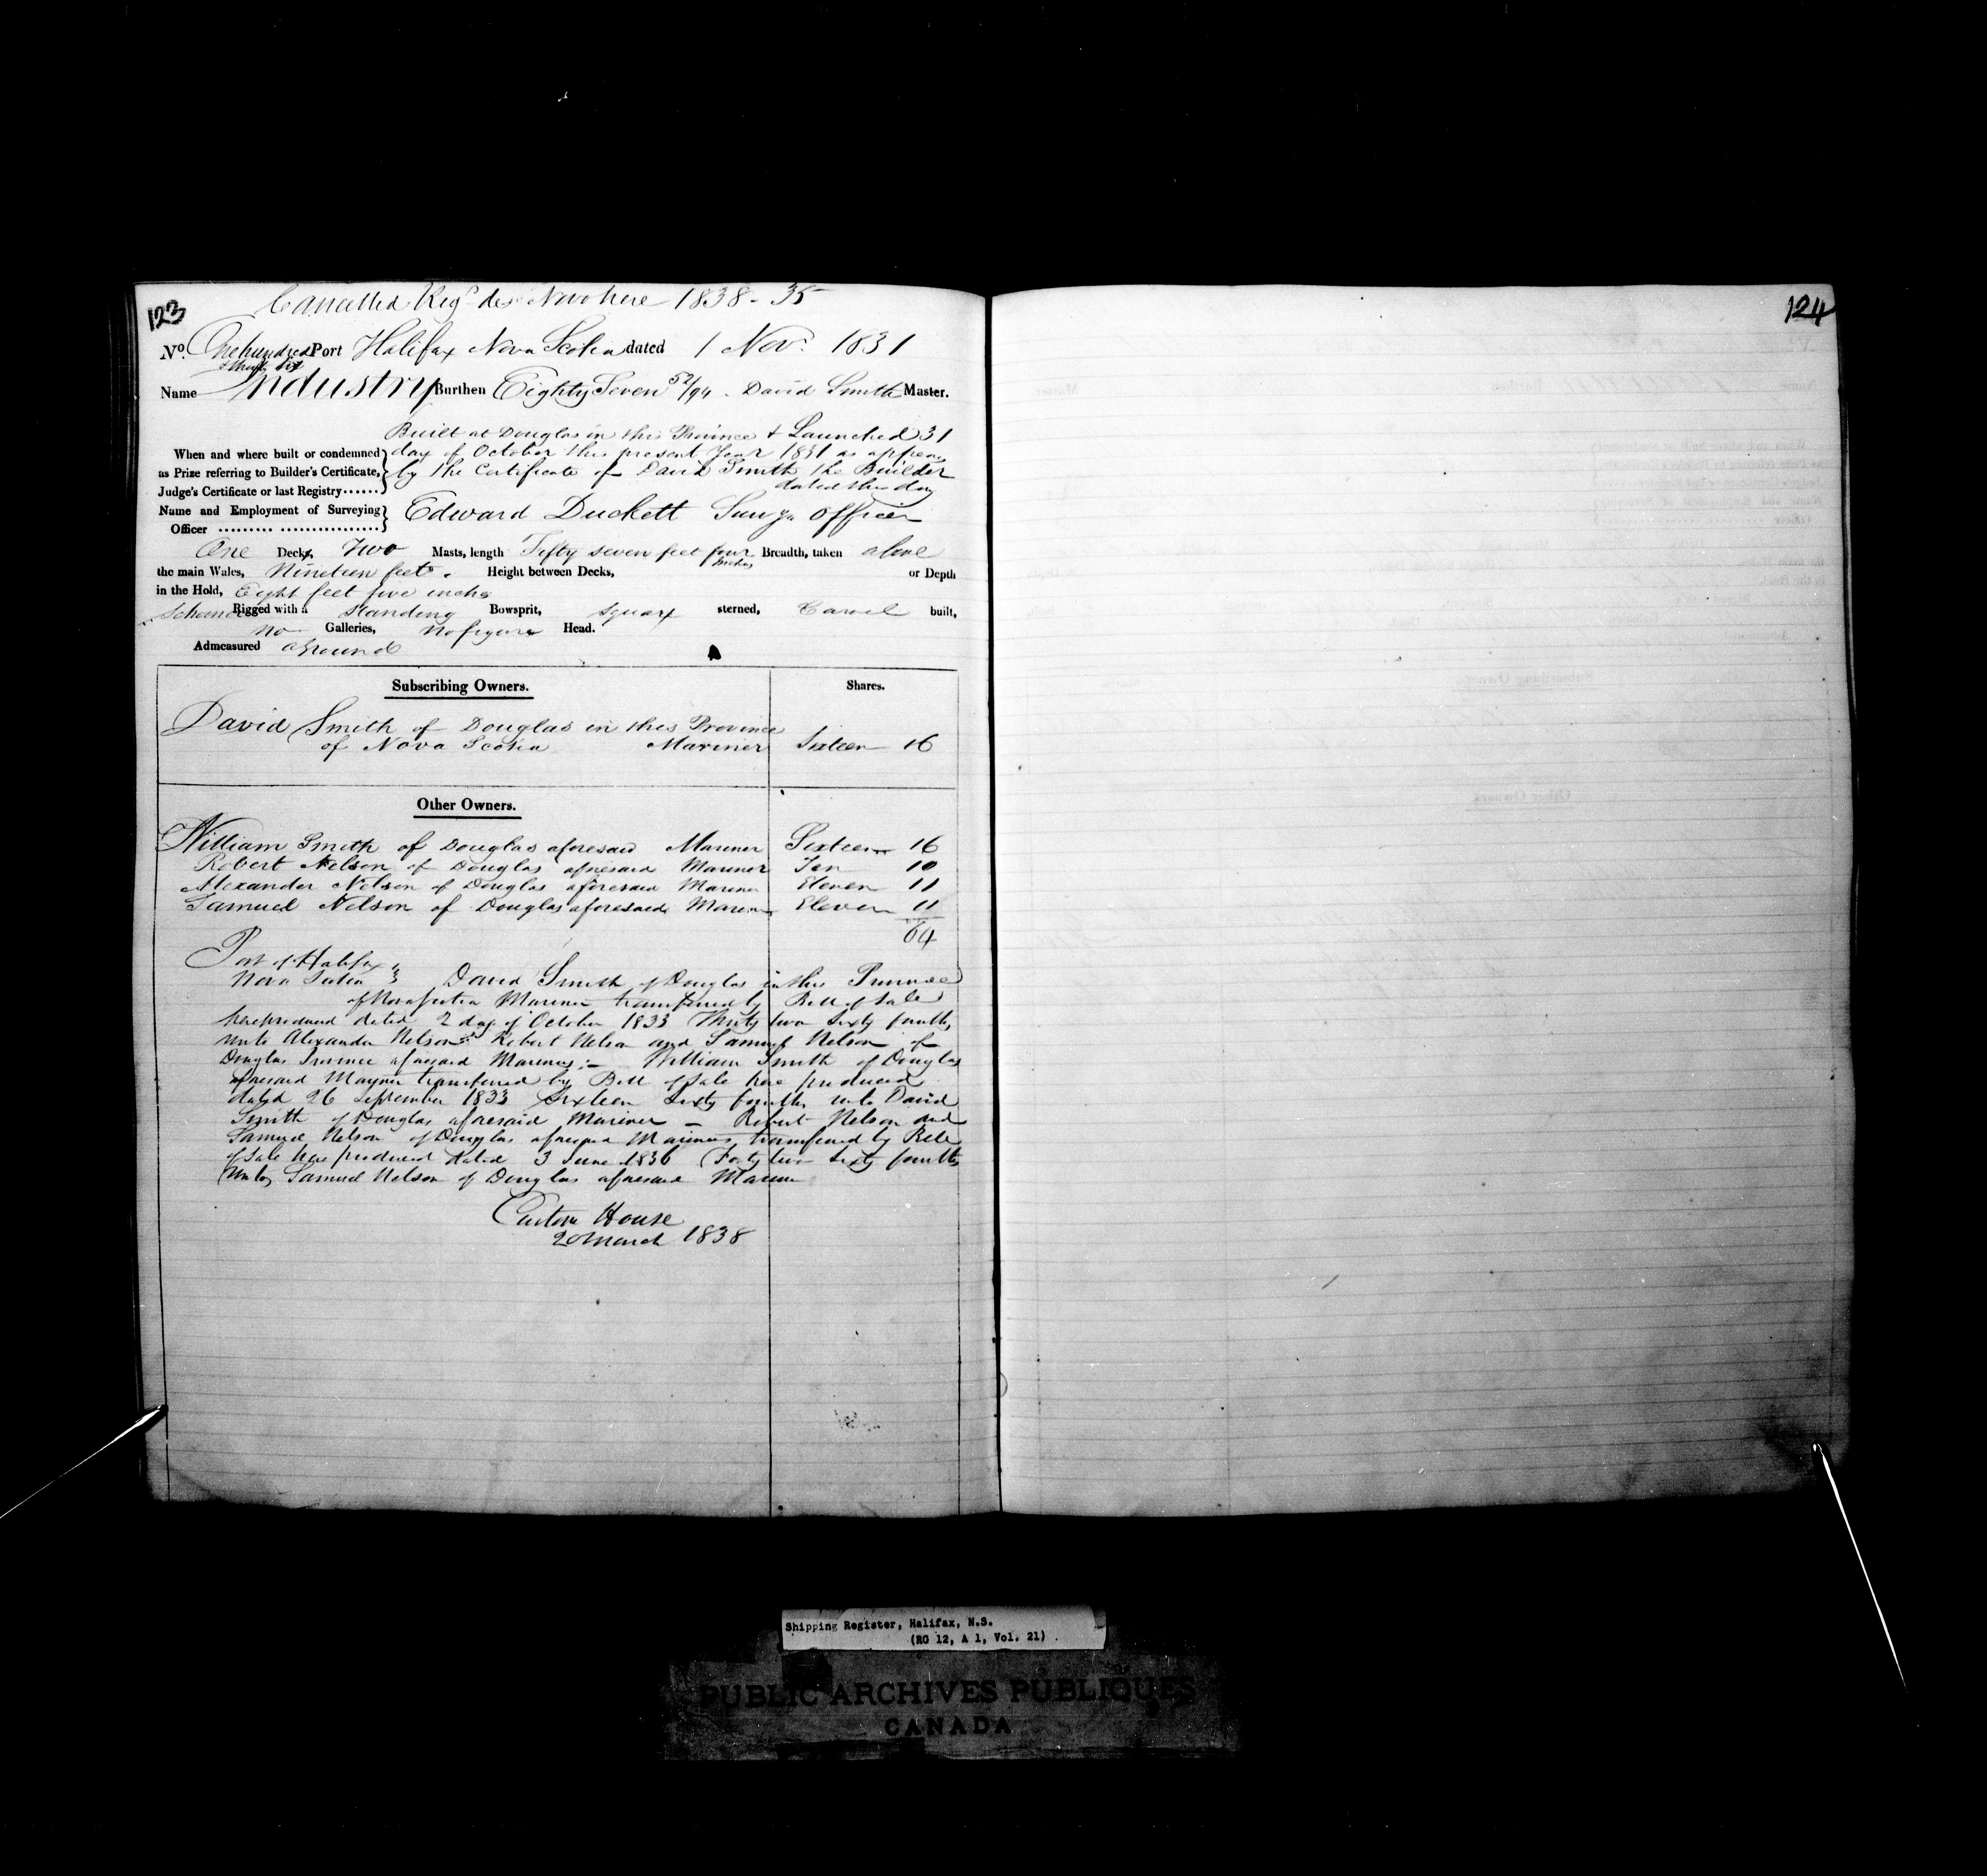 123
Cancelled Reg^d de Novo here 1838 - 35
No. One hundred Port Halifax Nova Scotia dated 1 Nov^r. 1831
& thirty six
Name Industry Burthen Eighty Seven 52/94 - David Smith Master.
Built at Douglas in this Province & Launched 31
When and where built or condemned day of October this present Year 1831 as appears
as Prize referring to Builder's Certificate, by the Certificate of David Smith the Builder
Judge's Certificate or last Registry...... dated this day
Name and Employment of Surveying Edward Duckett Officer
Officer ......... .................
One Decks, Two Masts, length Fifty seven feet four inches Breadth, taken above
the main Wales, Nineteen feet. Height between Decks, or Depth
in the Hold, Eight feet five inches
Schooner Rigged with a standing Bowsprit, square sterned, Carvel built,
no Galleries, no figure Head.
Admeasured aground
Subscribing Owners. Shares.
David Smith of Douglas in this Province
of Nova Scotia Mariner Sixteen 16
Other Owners.
William Smith of Douglas aforesaid Mariner Sixteen 16
Robert Nelson of Douglas aforesaid Mariner Ten 10
Alexander Nelson of Douglas aforesaid Mariner Eleven 11
Samuel Nelson of Douglas aforesaid Mariner Eleven 11
64
Port of Halifax
Nova Scotia } David Smith of Douglas in this Province
of Nova Scotia Mariner transferred by Bill of Sale
here produced dated 2 day of October 1833 Thirty two Sixty fourths
unto Alexander Nelson Robert Nelson and Samuel Nelson of
Douglas Province aforesaid Mariners :- William Smith of Douglas
aforesaid transferred by Bill of Sale here produced
dated 26 September 1833 Sixteen Sixty fourths unto David
Smith of Douglas aforesaid Mariner - Robert Nelson and
Samuel Nelson of Douglas aforesaid Mariners, transferred by Bill
of Sale here produced dated 3 June 1836 Forty two Sixty fourths
unto Samuel Nelson of Douglas aforesaid Mariner
Custom House
20 March 1838
124
Shipping Register, Halifax, N.S.
(RG 12, A 1, Vol. 21)
PUBLIC ARCHIVES PUBLIQUES
CANADA